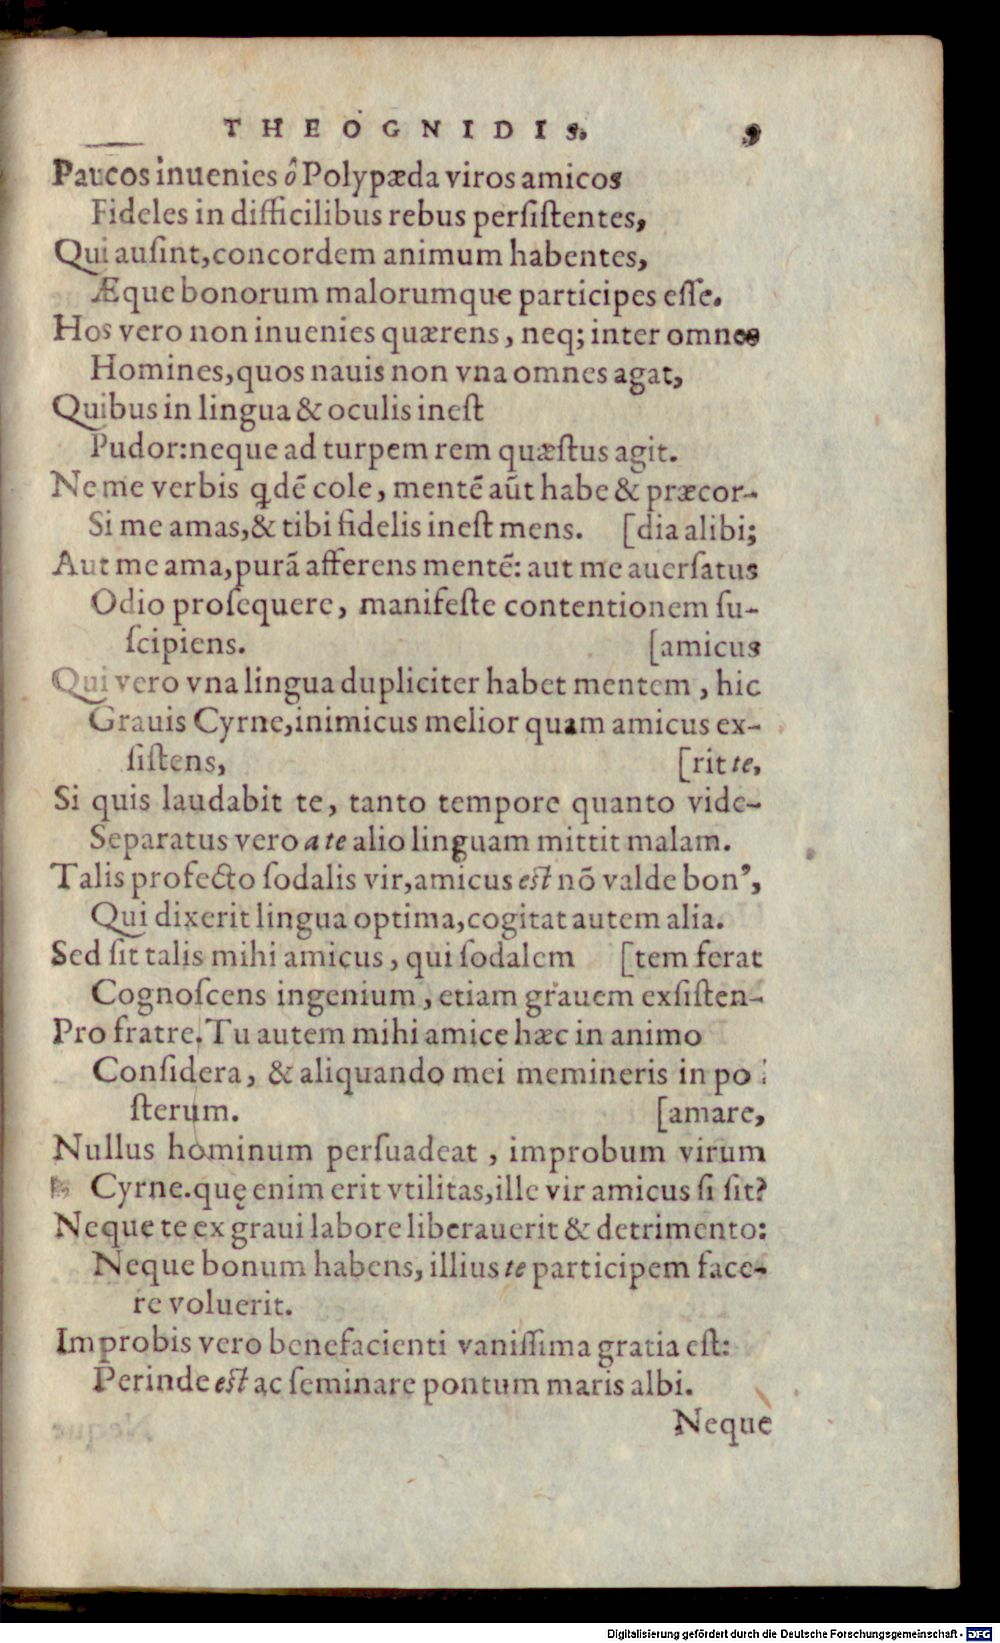 THEOGNIDIS. 9
Paucos inuenies ô Polypæda viros amicos
Fideles in difficilibus rebus persistentes,
Qui ausint, concordem animum habentes,
Æque bonorum malorumque participes esse.
Hos vero non inuenies quærens, neq; inter omnes
Homines, quos nauis non vna omnes agat,
Quibus in lingua & oculis inest
Pudor: neque ad turpem rem quæstus agit.
Ne me verbis qdē cole, mentē aūt habe & præcor-
Si me amas, & tibi fidelis inest mens. [dia alibi;
Aut me ama, purā afferens mentē: aut me auersatus
Odio prosequere, manifeste contentionem su-
scipiens. [amicus
Qui vero vna lingua dupliciter habet mentem, hic
Grauis Cyrne, inimicus melior quam amicus ex-
sistens, [rit te,
Si quis laudabit te, tanto tempore quanto vide-
Separatus vero a te alio linguam mittit malam.
Talis profecto sodalis vir, amicus est nō valde bon',
Qui dixerit lingua optima, cogitat autem alia.
Sed sit talis mihi amicus, qui sodalem [tem ferat
Cognoscens ingenium, etiam grauem exsisten-
Pro fratre. Tu autem mihi amice hæc in animo
Considera, & aliquando mei memineris in po
sterum. [amare,
Nullus hominum persuadeat, improbum virum
Cyrne. quę enim erit vtilitas, ille vir amicus si sit?
Neque te ex graui labore liberauerit & detrimento:
Neque bonum habens, illius te participem face-
re voluerit.
Improbis vero benefacienti vanissima gratia est:
Perinde est ac seminare pontum maris albi.
Neque
Digitalisierung gefördert durch die Deutsche Forschungsgemeinschaft - DFG